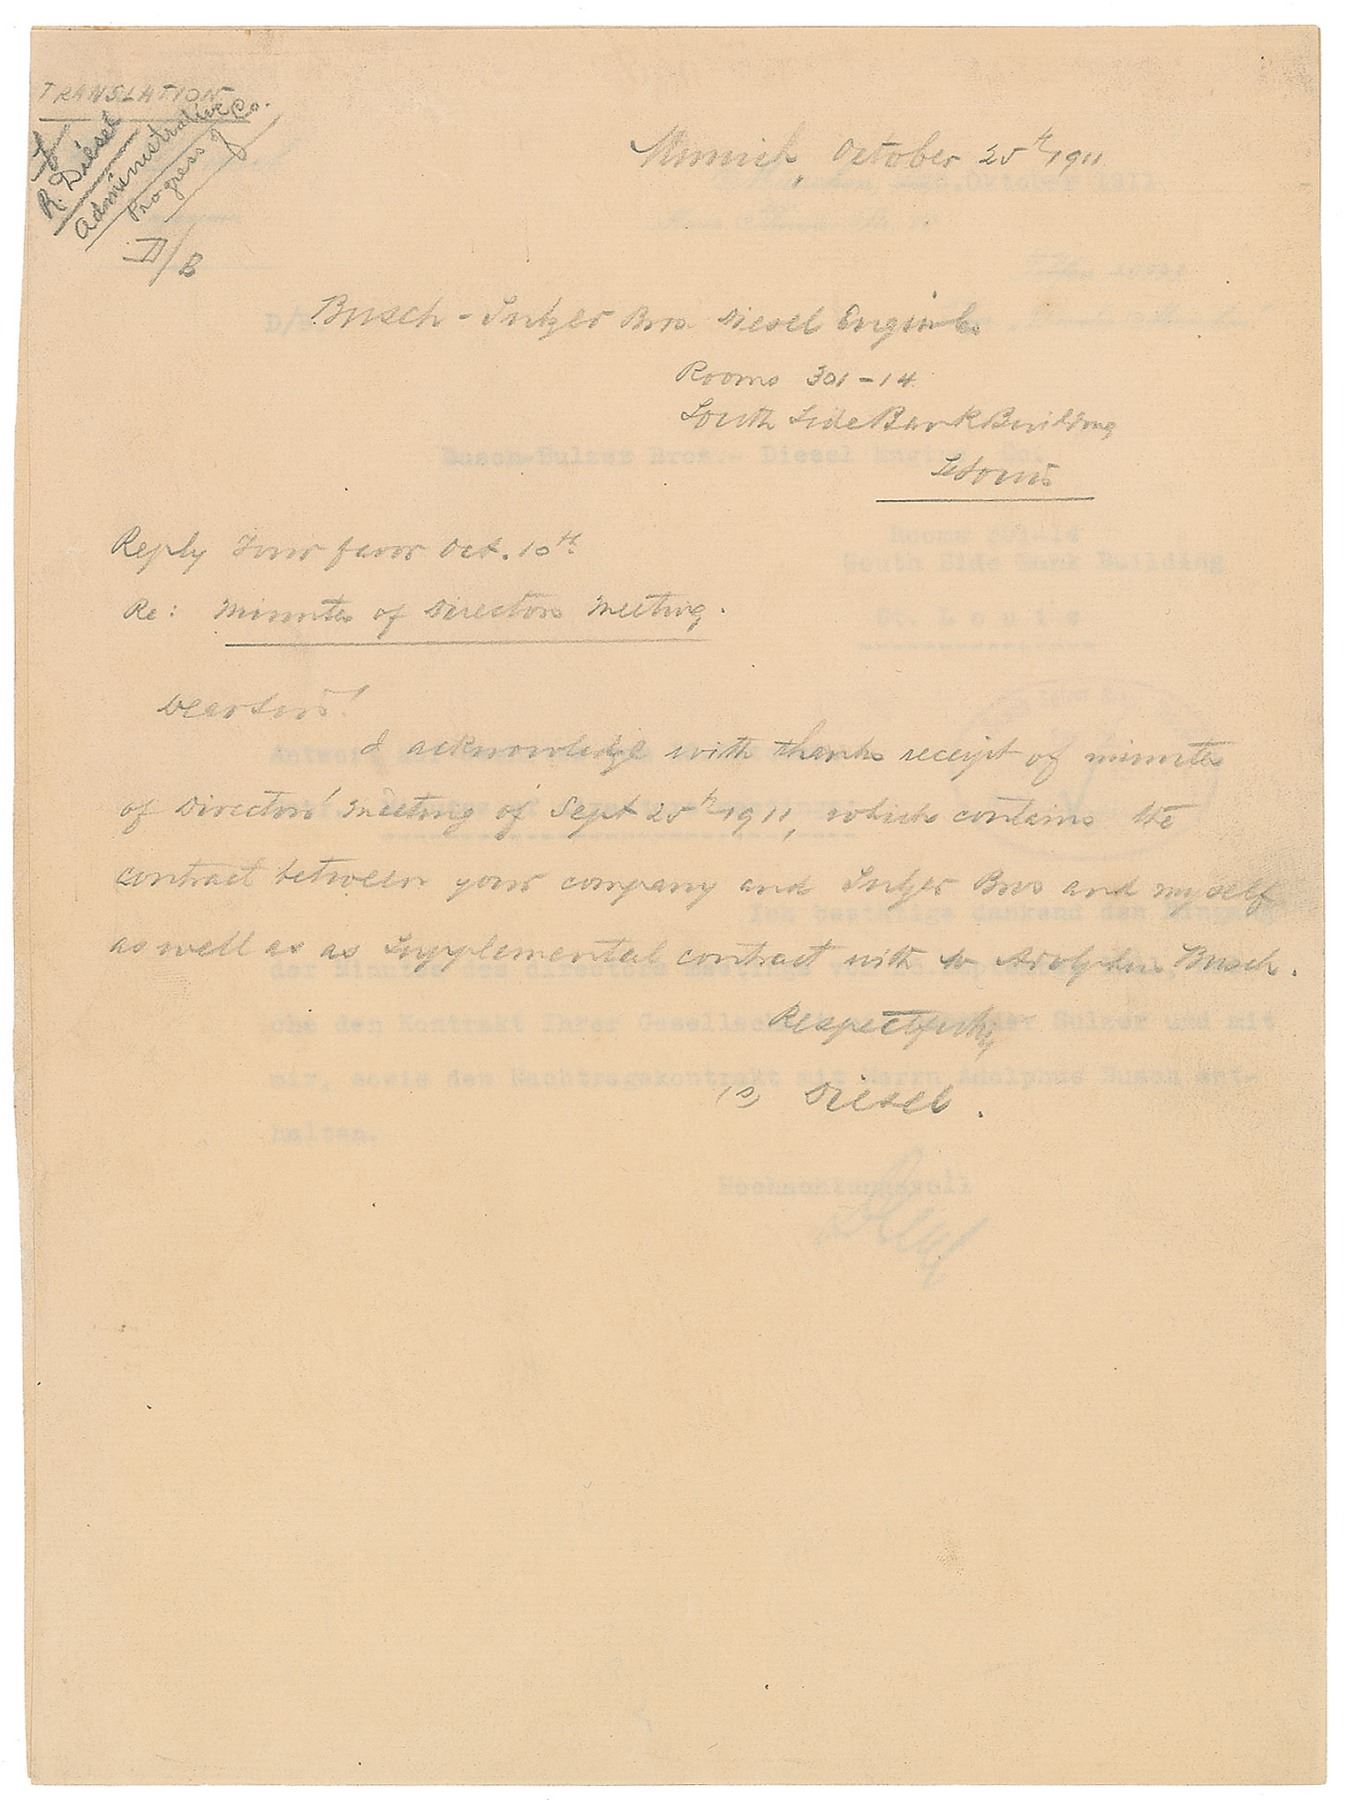 TRANSLATION
R. Diesel
Administrative Co.
Progress of
D/B
Munich, October 25th 1911
Busch-Sulzer Bros Diesel Engin Co
Rooms 301-14
South Side Bank Building
St Louis
Reply Your favor Oct. 10th
Re: Minutes of Directors Meeting.
Dear Sirs!
I acknowledge with thanks receipt of minutes
of Directors' Meeting of Sept 25th 1911, which contains the
contract between your company and Sulzer Bros and myself
as well as as Supplemental contract with Adolphus Busch.
Respectfully
(s) Diesel.
Oktober 1911
D/
Busch-Sulzer Bros.- Diesel Engine Co.
Rooms 301-14
South Side Bank Building
St. Louis
Antwort
Ich bestätige dankend den Eingang
der Minutes
che den Kontrakt Ihrer Gesellschaft Sulzer und mit
mir, sowie den Nachtragskontrakt mit Herrn Adolphus Busch ent-
halten.
Hochachtungsvoll
Diesel